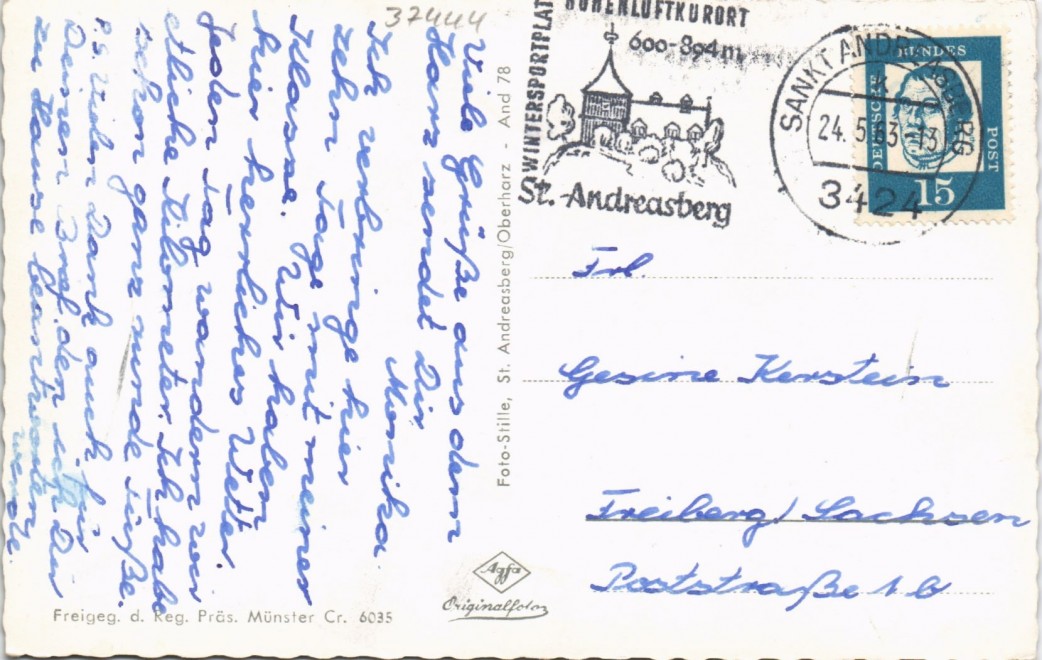 37444
Viele Grüße aus dem
Harz sendet Dir
Monika
Ich verbringe hier
zehn Tage mit meiner
Klasse. Wir haben
hier herrliches Wetter.
Jeden Tag wandern wir
etliche Kilometer. Ich habe
schon ganz runde Füße.
P.S. Vielen Dank auch für
Deinen Brief, den ich Dir
zu Hause beantworten
werde.
Foto-Stille, St. Andreasberg/Oberharz - And 78
Freigeg. d. Reg. Präs. Münster Cr. 6035
Agfa
Originalfoto
WINTERSPORTPLATZ
HÖHENLUFTKURORT
600-894m
St.-Andreasberg
SANKT ANDREASBERG
24.5.63-13
3424
DEUTSCHE
BUNDES
POST
15
Frl.
Gesine Kerstein
Freiberg/Sachsen
Poststraße 1b